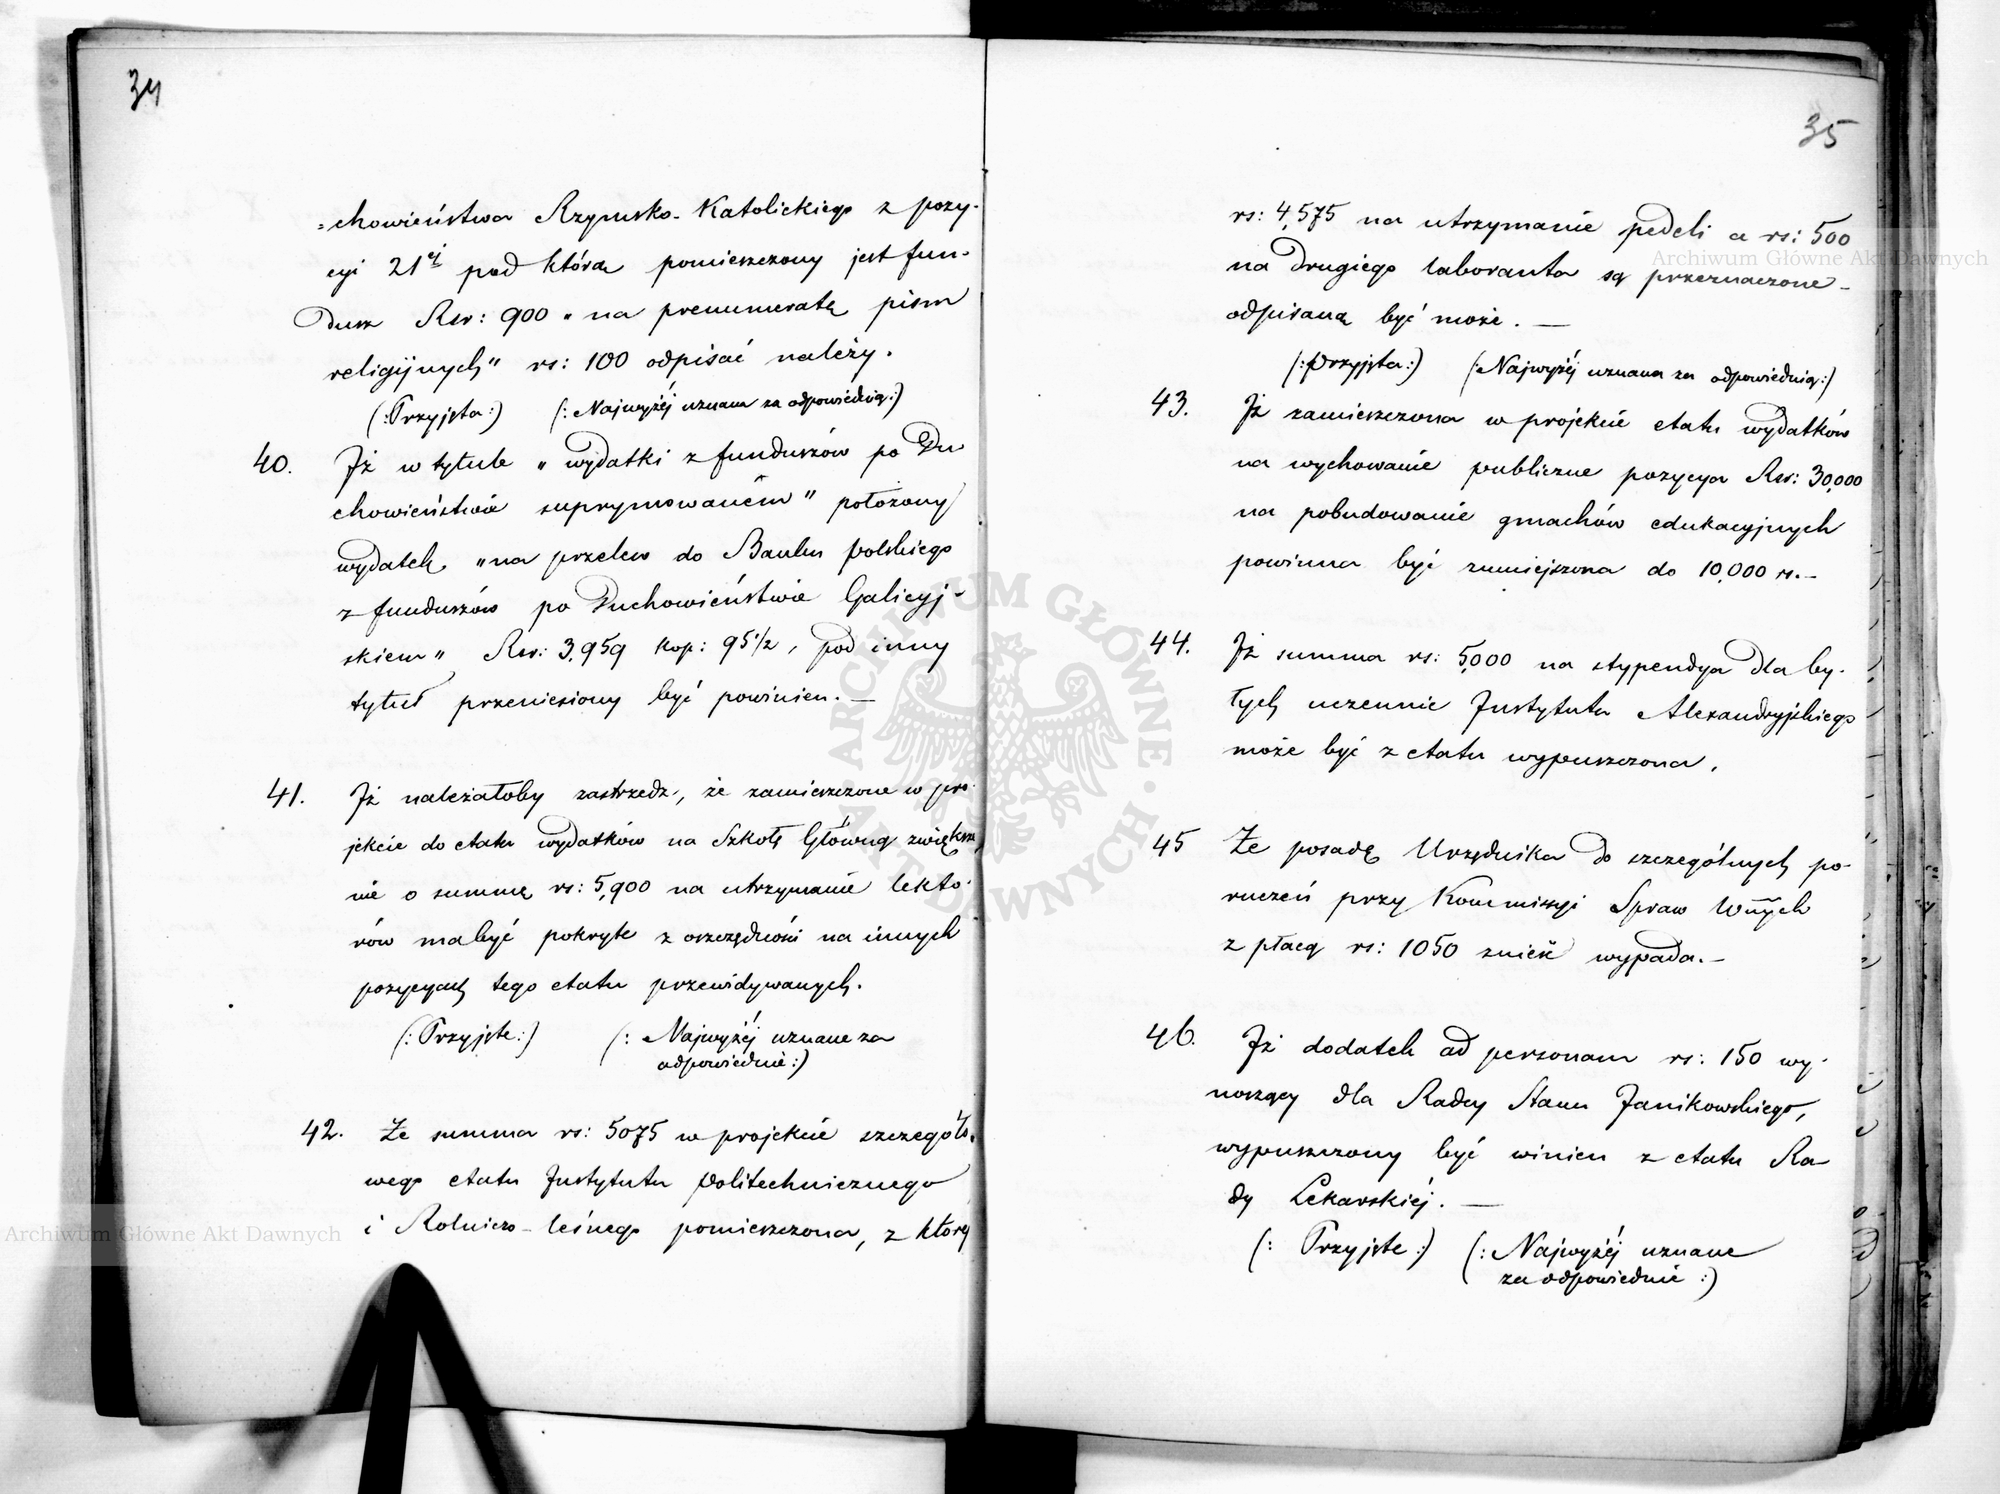 34
=chowieństwa Rzymsko-Katolickiego z pozy-
cyi 21éj pod którą pomieszczony jest fun-
dusz Rsr: 900 „na prenumeratę pism
religijnych" rs: 100 odpisać należy.
(:Przyjęta:) (:Najwyżéj uznana za odpowiednią:)
40. Iż w tytule „wydatki z funduszów po Du
chowieństwie suprymowaném" położony
wydatek „na przelew do Banku Polskiego
z funduszów po Duchowieństwie Galicyj-
skiem" Rsr: 3,959 kop: 95½, pod inny
tytuł przeniesiony być powinien. —
41. Iż należałoby zastrzedz, że zamieszczone w pro-
jekcie do etatu wydatków na Szkołę Główną zwiększe
nie o summę rs: 5,900 na utrzymanie lekto-
rów ma być pokryte z oszczędności na innych
pozycyach tego etatu przewidywanych.
(:Przyjęte:) (: Najwyżéj uznane za
odpowiednie:)
42. Że summa rs: 5075 w projekcie szczegóło-
wego etatu Instytutu Politechnicznego
i Rolniczo-leśnego pomieszczona, z któréj
35
rs: 4,575 na utrzymanie pedeli a rs: 500
na drugiego laboranta są przeznaczone –
odpisaną być może. —
(:Przyjęta:) (:Najwyżéj uznana za odpowiednią:)
43. Iż zamieszczona w projekcie etatu wydatków
na wychowanie publiczne pozycya Rsr: 30,000
na pobudowanie gmachów edukacyjnych
powinna być zmniejszona do 10,000 rs. –
44. Iż summa rs: 5,000 na stypendya dla by-
łych uczennic Instytutu Alexandryjskiego
może być z etatu wypuszczona.
45 Że posadę Urzędnika do szczególnych po-
ruczeń przy Kommissyi Spraw Wnych
z płacą rs: 1050 znieść wypada. –
46. Iż dodatek ad personam rs: 150 wy-
noszący dla Radcy Stanu Janikowskiego,
wypuszczony być winien z etatu Ra
dy Lekarskiéj. —
(: Przyjęte:) (:Najwyżéj uznane
za odpowiednie:)
Archiwum Główne Akt Dawnych
Archiwum Główne Akt Dawnych
ARCHIWUM GŁÓWNE AKT DAWNYCH